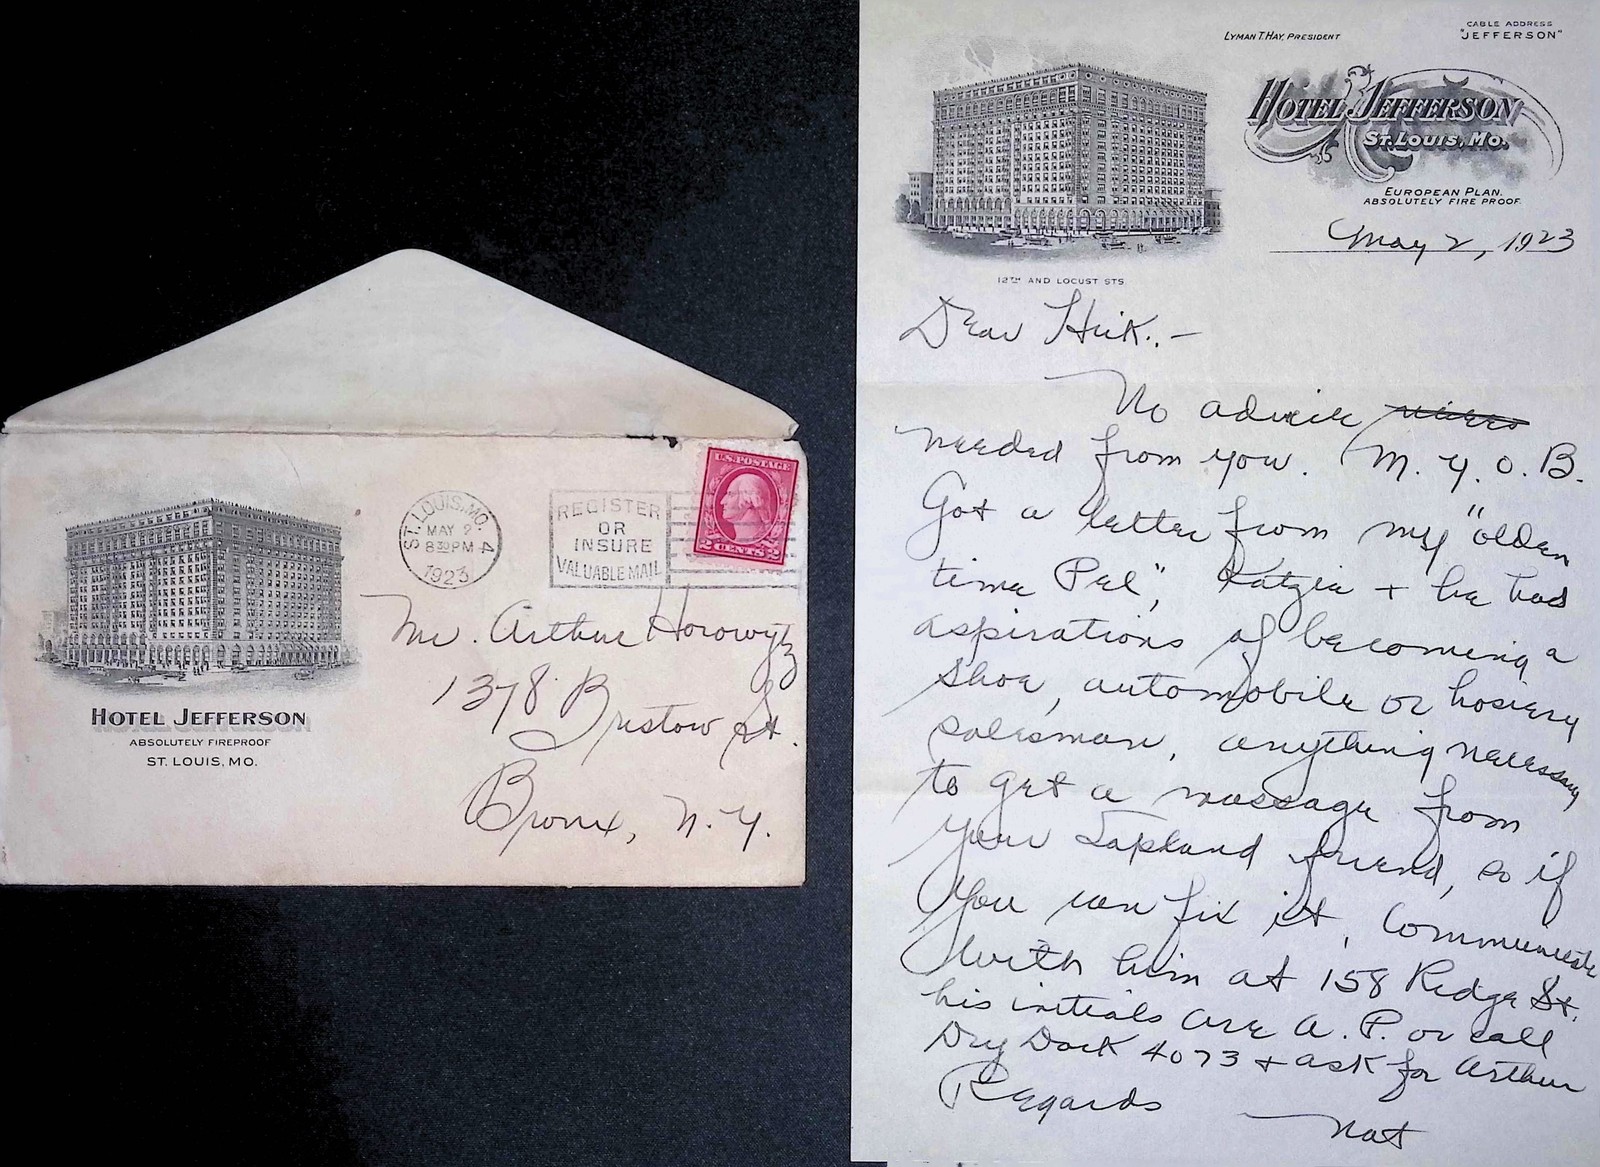 HOTEL JEFFERSON
ABSOLUTELY FIREPROOF
ST. LOUIS, MO.
ST. LOUIS, MO. 4
MAY 2
8 30 PM
1923
REGISTER
OR
INSURE
VALUABLE MAIL
U.S. POSTAGE
2 CENTS 2
Mr. Arthur Horowytz
1378 Bristow St.
Bronx, N.Y.
LYMAN T. HAY, PRESIDENT
CABLE ADDRESS
"JEFFERSON"
HOTEL JEFFERSON
ST. LOUIS, MO.
EUROPEAN PLAN.
ABSOLUTELY FIRE PROOF.
12TH AND LOCUST STS.
May 2, 1923
Dear Hick.-
No advice
needed from you. M.Y.O.B.
Got a letter from my "olden
time Pal", Katzie + he has
aspirations of becoming a
shoe, automobile or hosiery
salesman, anything necessary
to get a massage from
your Lapland friend, so if
you can fix it, communicate
with him at 158 Ridge St.
his initials are A.P. or call
Dry Dock 4073 + ask for Arthur
Regards
Nat